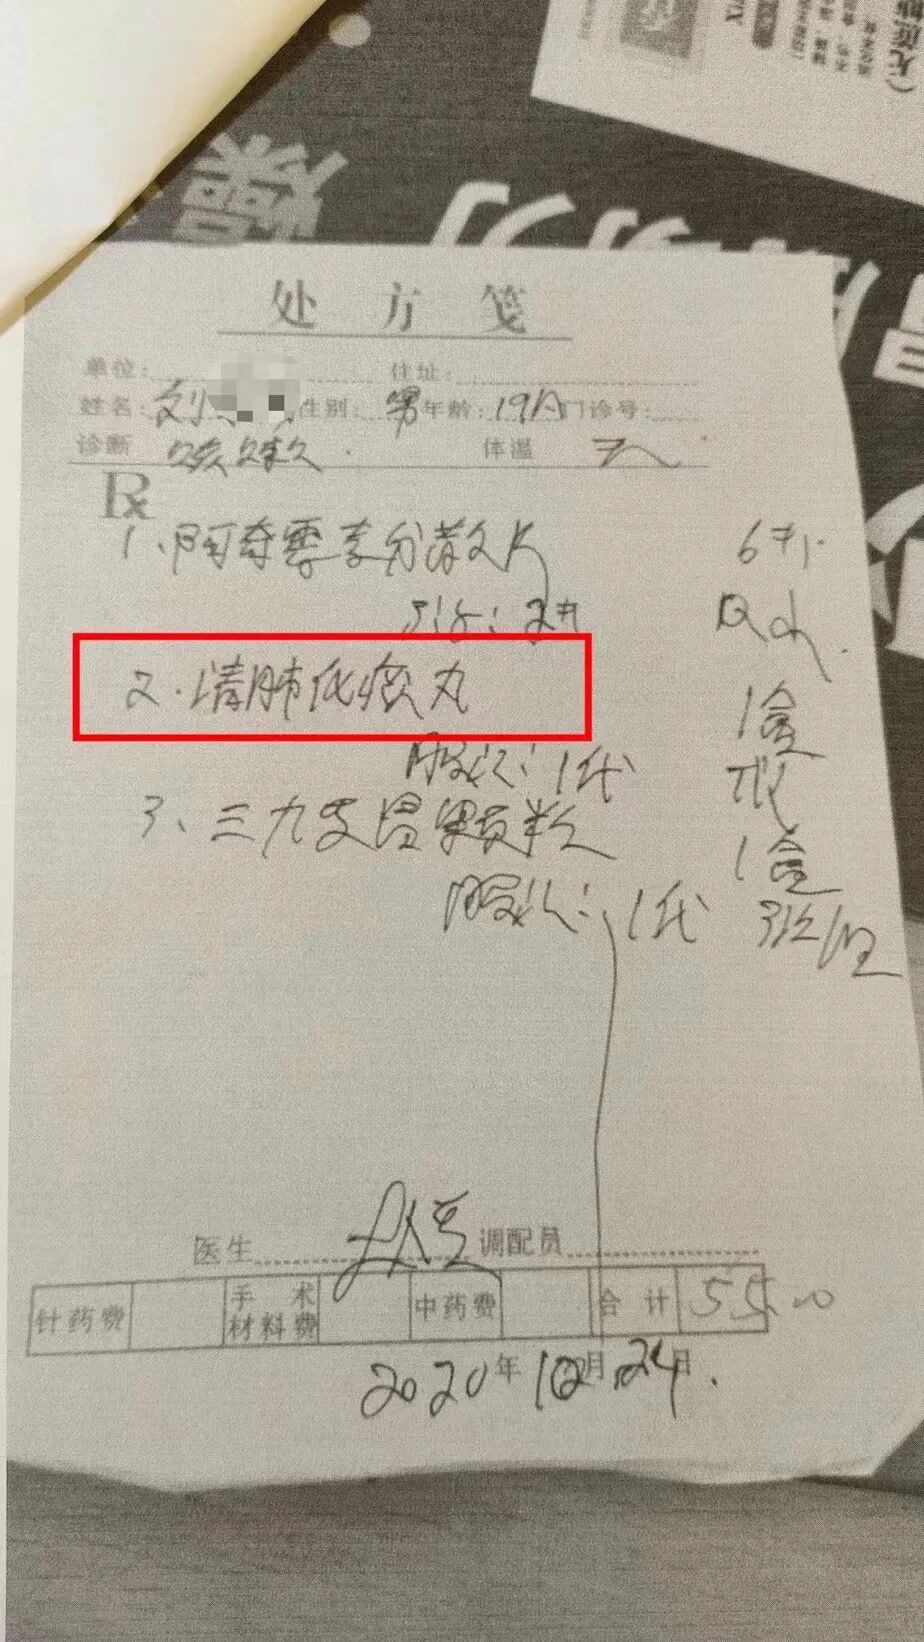 处方笺
单位: 住址:
姓名: 刘 性别: 男 年龄: 19月 门诊号:
诊断 咳嗽 体温
Rx
1、阿奇霉素分散片 6片
2片 Qd
2.清肺化痰丸 1盒
服法: 1代
3、三九支冒颗粒 1盒
服法: 1代 3次/日
医生 调配员
针药费 手术材料费 中药费 合计 55.00
2020年 月 24日